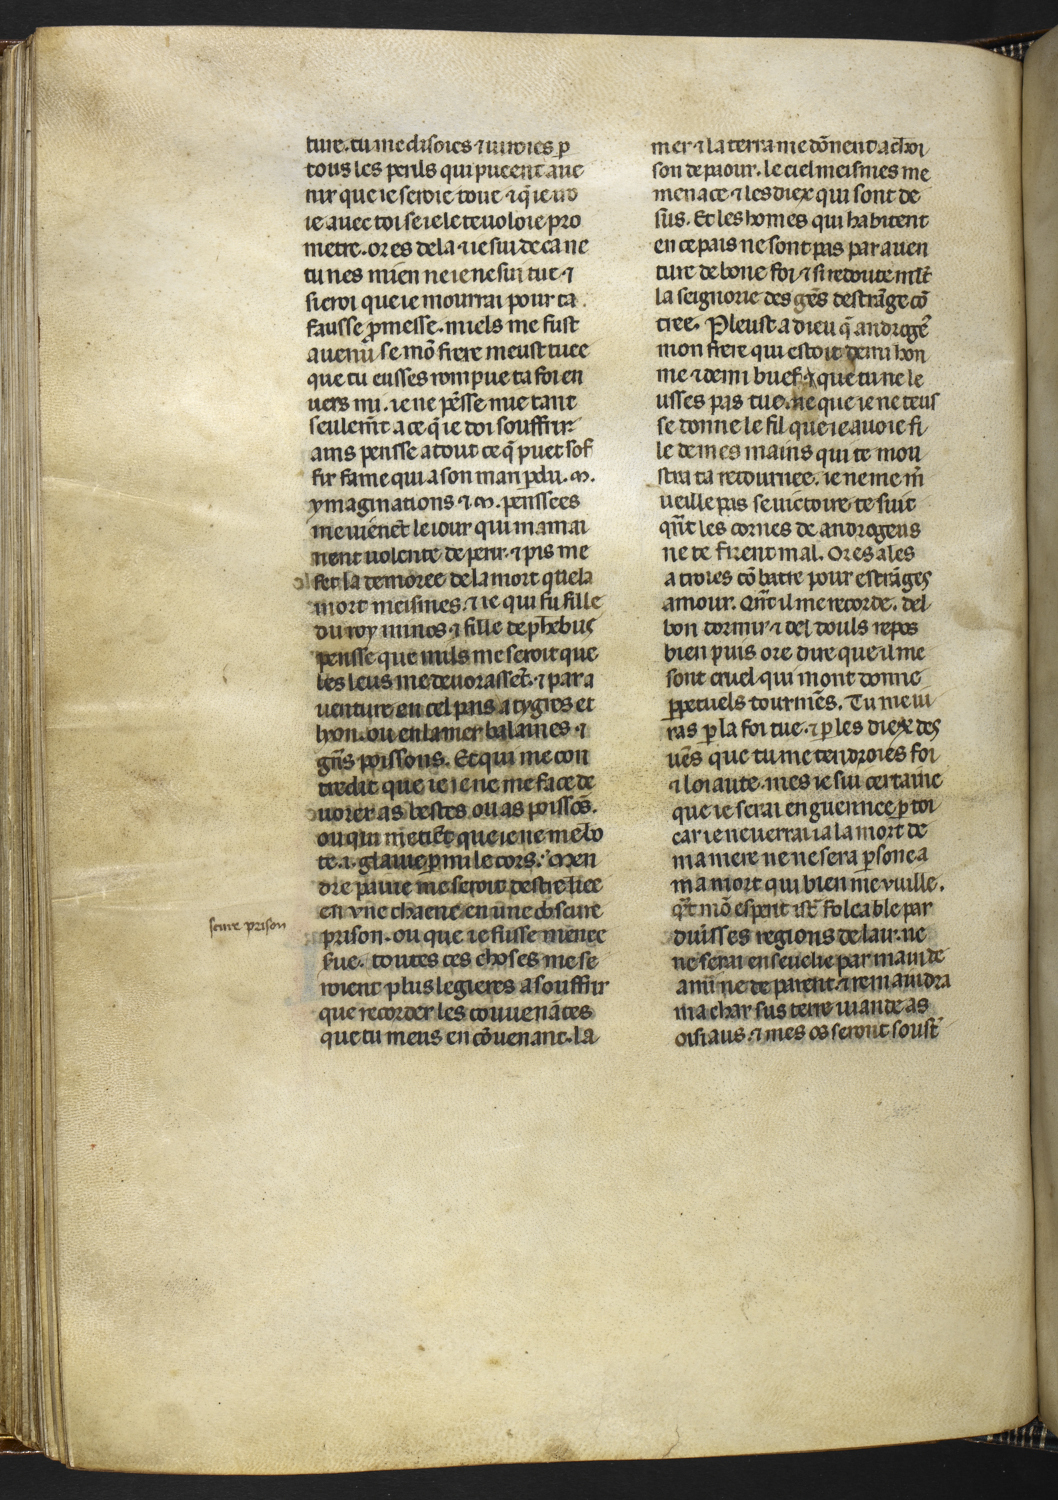 ture. tu me disoies ⁊ iuroies ꝑ
tous les perils qui pueent aue
nir que ie seroie toue ⁊ q̃ ie uo
ie auec toi se ie le te uoloie pro
metre. or es de la ⁊ ie sui de ca ne
tu nes mien ne ie ne sui tue ⁊
si croi que ie mourrai pour ta
fausse ꝓmesse. miels me fust
auenu se mõ frere meust tuee
que tu eusses rompue ta foi en
uers mi. ie ne pẽsse mie tant
seulem̃t a ce q̃ ie doi souffrir
ains pensse a tout ce q̃ puet sof
frir fame qui a son mari ꝑdu. m̃.
ymaginations ⁊ .m̃. penssees
me uienẽt le iour qui mamai
nent uolente de perir. ⁊ pis me
fet la demoree de la mort que la
mort meismes. ⁊ ie qui fu fille
du roy minos ⁊ fille de phebus
pensse que mils me seroit que
les leus me deuorassẽt. ⁊ par a
uenture en cel pais a tygres et
lyon. ou en la mer balaines ⁊
grñs poissons. Et qui me con
tredit que ie ie ne me face de
uorer as bestes ou as poissõs.
ou qui me tiẽt que ie ne me bo
te .i. glaiue ꝑmi le cors. Men
dre paine me seroit destre liee
en vne chaene en une obscure
prison. ou que ie fusse menee
fue. toutes ces choses me se
roient plus legieres a souffrir
que recorder les couuenãces
que tu meus en cõuenant. La
scure prison
mer ⁊ la terra me dõnent achoi
son de paour. le ciel meismes me
menace ⁊ les diex qui sont de
sus. Et les homes qui habitent
en ce pais ne sont pas par auen
ture de bone foi ⁊ si redoute ml̃t
la seignorie des gẽs destrãge cõ
tree. Pleust a dieu q̃ androgẽ
mon frere qui estoit demi hon
me ⁊ demi buef ⁊ que tu ne le
usses pas tue. ne que ie ne teus
se donne le fil que ie auoie fi
le de mes mains qui te mon
stra ta retournee. ie ne me m̃
ueille pas se uictoire te suit
qñt les cornes de androgeus
ne te firent mal. Or es ales
a troies cõbatre pour estrãges
amour. Qñt il me recorde. del
bon dormir ⁊ del douls repos
bien puis ore dire que il me
sont cruel qui mont donne
ꝑpetuels tourmẽs. Tu me iu
ras ꝑ la foi tue. ⁊ ꝑ les diex des
uẽs que tu me tendroies foi
⁊ loiaute. mes ie sui certaine
que ie serai enguennee ꝑ toi
car ie ne uerrai ia la mort de
ma mere ne ne sera ꝑsone a
ma mort qui bien me vuille.
qñt mõ esperit ist foleable par
duisses regions de lair. ne
ne serai enseuelie par main de
ami ne de parent. ⁊ remaindra
ma char sus terre uiande as
oisiaus. ⁊ mes os seront soust̃